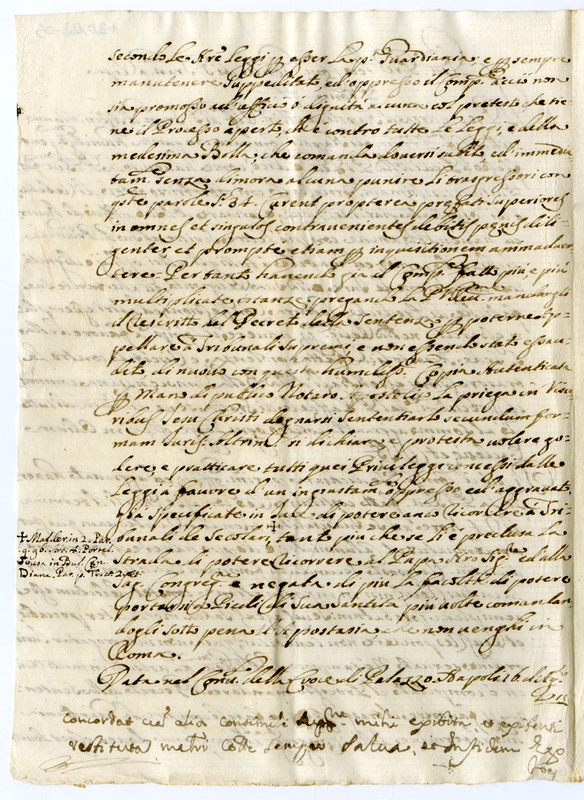 secondo le Nre Leggi esser la Guardiania; e sempre
manutenere suppeditato, ed oppresso il Comp. acciò non
sia promosso ad officio ò dignità alcuna col pretesto che tie-
ne il Processo aperto, che è contro tutte le Leggi, e della
medesima Bolla; che comanda doversi subito ed immedia-
tam. senza dimora alcuna punire li trasgressori con
qste parole Curent propterea Superiores
in omnes et singulos contravenientes debitis penis dili-
genter, et promptè etiam inquisitionem animadver-
tere. Pertanto havendo già il Comp. fatto più e più
multiplicate istanze, pregando la mandargli
il Rescritto del Decreto della Sentenza poterne Ap-
pellare à Tribunali Supremi, e non essendo stato esau-
dito di nuovo con questa humiliss. Copia Autenticata
Mano di publico Notaro Apostolico la priega in Visce-
ribus Jesu Christi degnarsi Sententiarlo secundum for-
mam Juris. Altrim. si dichiara, e protesta volere go-
dere, e pratticare tutti quei Privileggi concessi dalle
Leggi à favore d'un ingiustam. oppresso ed aggravato,
già specificate in di potere anco ricorrere à Tri-
bunali de Secolari, + tanto più che se li è preclusa la
strada di potere ricorrere al Papa ed alla
Sag. Congreg. e negata di più la facoltà di potere
portarsi à Piedi di Sua Santità più volte comandan
dogli sotto pena d'Apostasia che non venghi in
Roma.
+ Malder. in 2. Par.
q. 90.
Diana. Par.
Data nel Conv. della Croce di Palazzo. Napoli 16
concordat mihi exibita et exibenti
restituta semper salva, et in fidem Ego